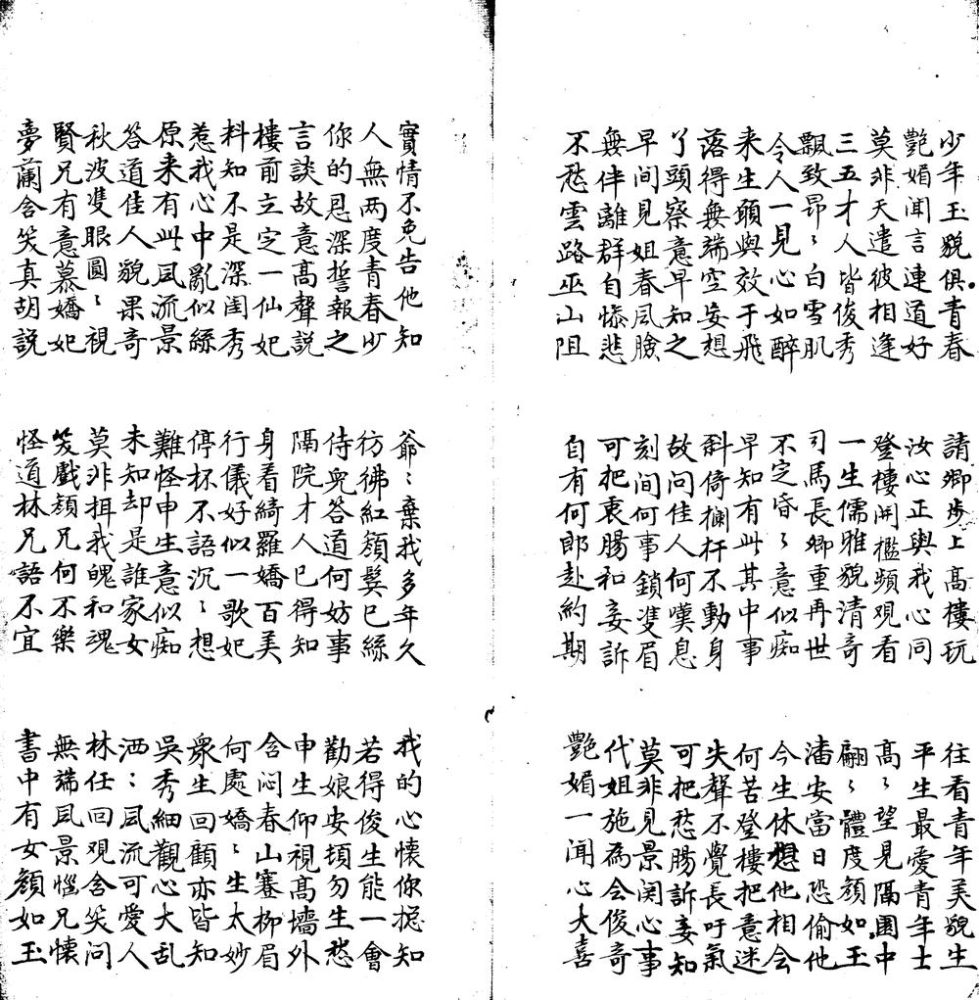 少年玉貌俱青春 請卿步上高樓玩 往看青年美貌生
艷媚聞言連道好 汝心正與我心同 平生最愛青年士
莫非天遣彼相逢 登樓開檻頻觀看 高〻望見隔園中
三五才人皆俊秀 一生儒雅貌清奇 翩〻體度顏如玉
飄致昂〻白雪肌 司馬長卿重再世 潘安當日恐偷他
令人一見心如醉 不定昏〻意似痴 今生休想他相会
来生願與效于飛 早知有此其中事 何苦登樓把意迷
落得無端空妄想 斜倚欄杆不動身 失聲不覺長吁氣
丫頭察意早知之 故問佳人何嘆息 可把愁腸訴妾知
早間見姐春風臉 刻間何事鎖雙眉 莫非見景関心事
無伴離群自慘悲 可把衷腸和妾訴 代姐施為会俊奇
不愁雲路巫山阻 自有何郎赴約期 艷媚一聞心大喜
實情不免告他知 爺〻棄我多年久 我的心懷你搃知
人無两度青春少 彷彿紅顏鬂已絲 若得俊生能一會
你的恩深誓報之 侍兒答道何妨事 勸娘安頓勿生愁
言談故意高聲説 隔院才人已得知 申生仰視高墻外
樓前立定一仙妃 身着綺羅嬌百美 含闷春山蹇柳眉
料知不是深闺秀 行儀好似一歌妃 何處嬌〻生太妙
惹我心中亂似絲 停杯不語沉〻想 衆生回顧亦皆知
原来有此風流景 難怪申生意似痴 吳秀細觀心大乱
答道佳人貌果奇 未知却是誰家女 洒〻風流可愛人
秋波雙眼圓〻視 莫非揖我魄和魂 林任回观含笑问
賢兄有意慕嬌妃 笑戲顏兄何不樂 無端風景惱兄懷
夢蘭含笑真胡説 怪道林兄語不宜 書中有女顏如玉